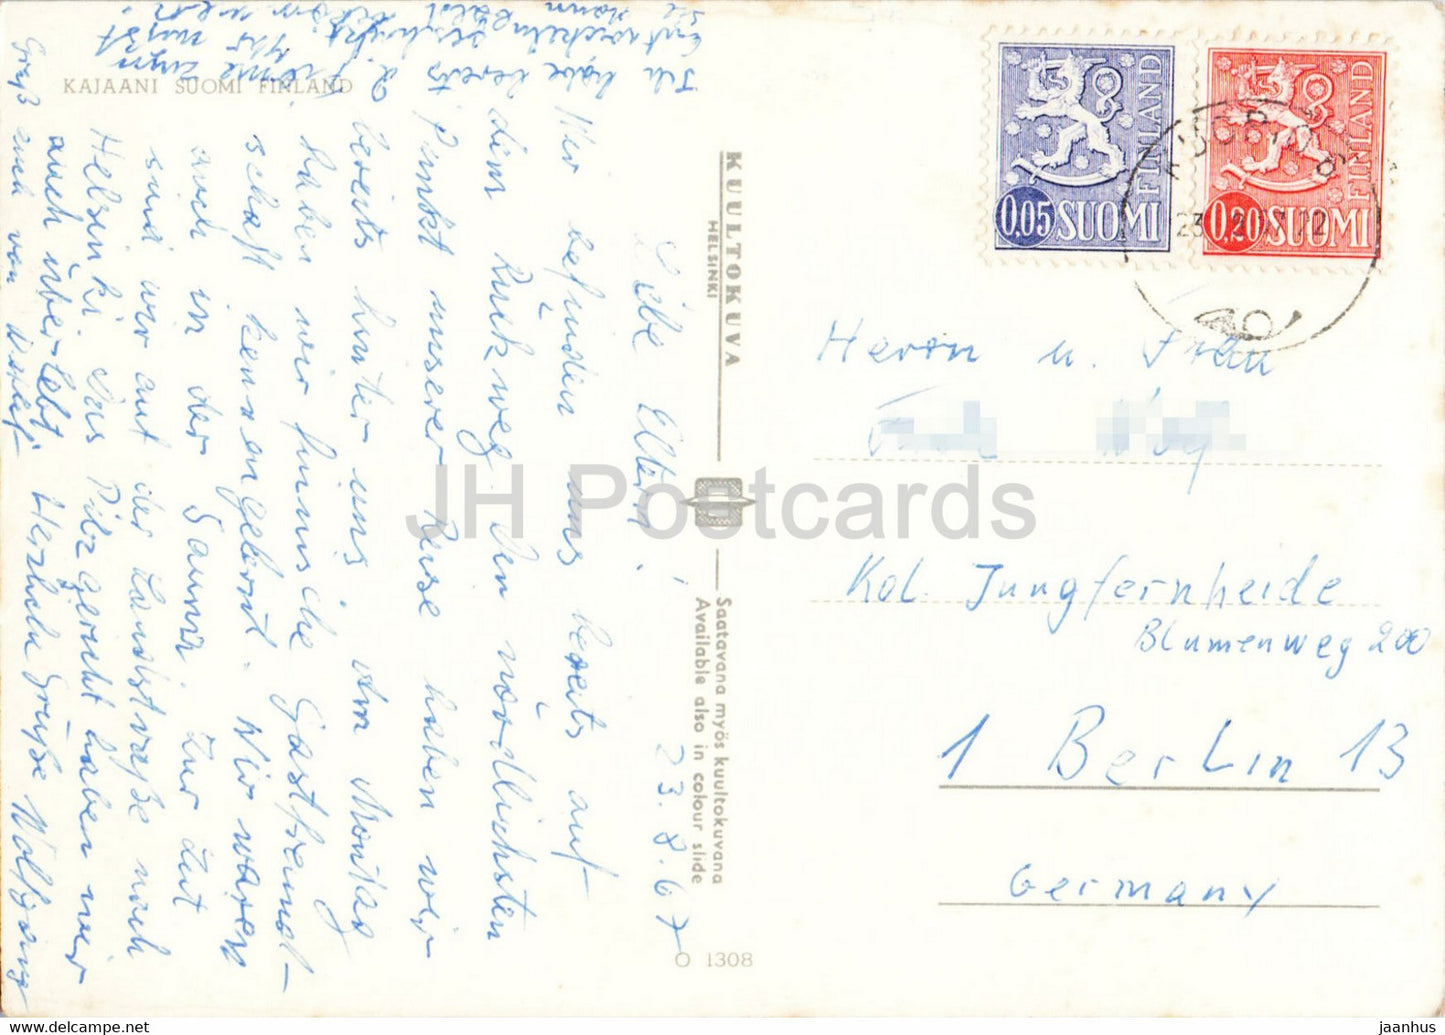 KAJAANI SUOMI FINLAND
KUULTOKUVA
HELSINKI
Saatavana myös kuultokuvana
Available also in colour slide
O 1308
23.8.67
Liebe Eltern!
Wir befinden uns bereits auf
dem Rückweg. Den nördlichsten
Punkt unserer Reise haben wir
bereits hinter uns. An Monikas
haben wir finnische Gastfreund-
schaft kennengelernt. Wir waren
auch in der Sauna. Zur Zeit
sind wir auf der Landstraße nach
Helsinki. Das Pilzgericht haben wir
auch überlebt. Herzliche Grüße Wolfgang
Gruß auch von Detlef
Ich habe bereits 2 Filme
0,05 SUOMI
FINLAND
0,20 SUOMI
FINLAND
Herrn u. Frau
Kol. Jungfernheide
Blumenweg 200
1 Berlin 13
Germany
JH Postcards